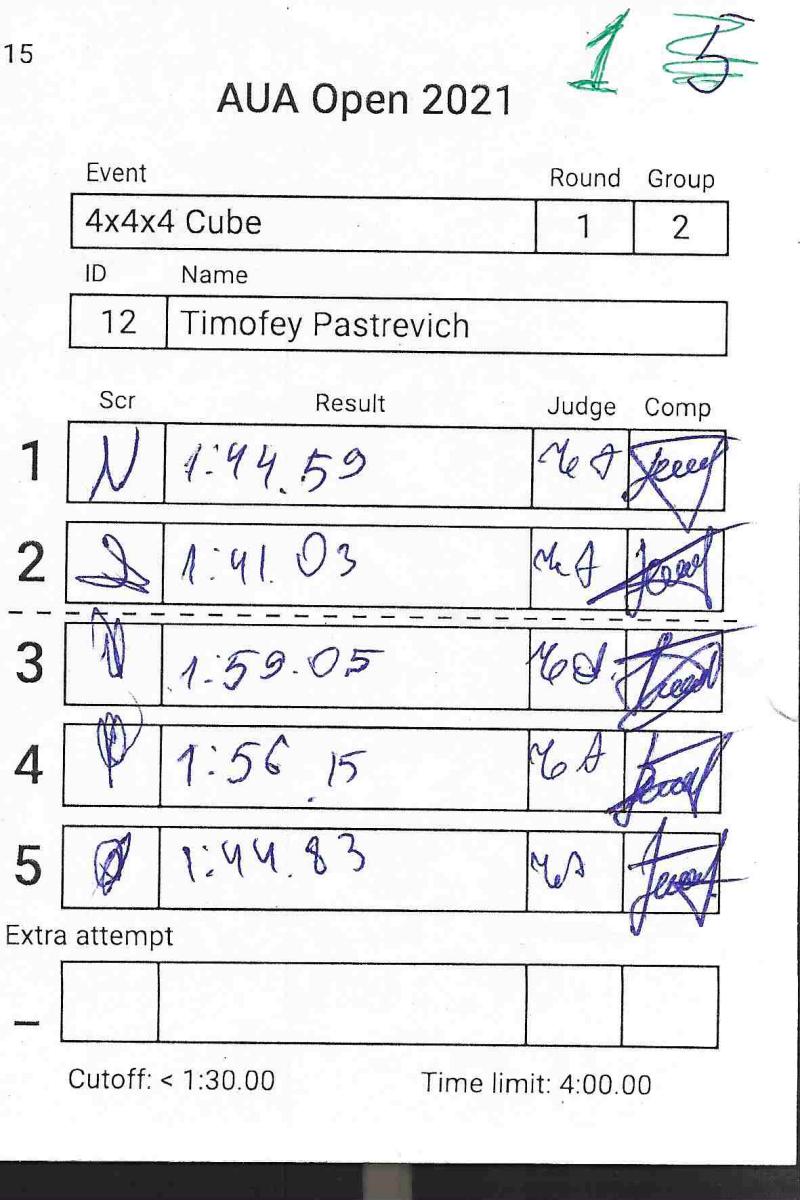 15
1 5
AUA Open 2021
Event Round Group
4x4x4 Cube 1 2
ID Name
12 Timofey Pastrevich
Scr Result Judge Comp
1 1:44.59
2 1:41.03
3 1:59.05
4 1:56.15
5 1:44.83
Extra attempt
–
Cutoff: < 1:30.00 Time limit: 4:00.00